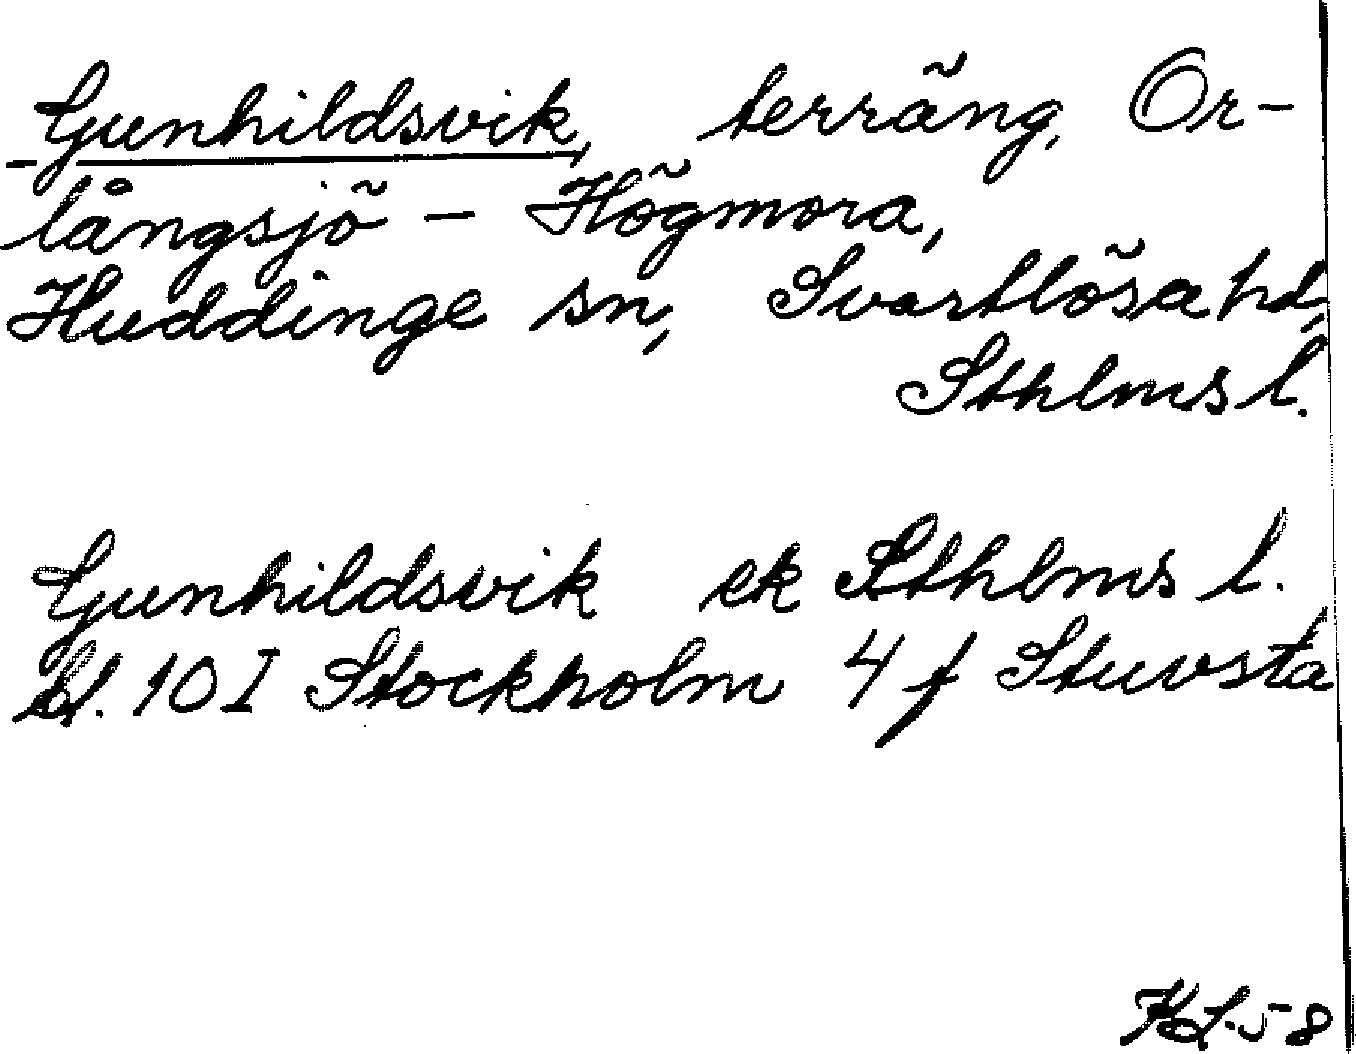 Gunhildsvik, terräng, Or-
långsjö - Högmora,
Huddinge sn, Svartlösa hd,
Sthlms l.
Gunhildsvik ek Sthlms l.
bl. 10 I Stockholm 4 f Stuvsta
KL.58